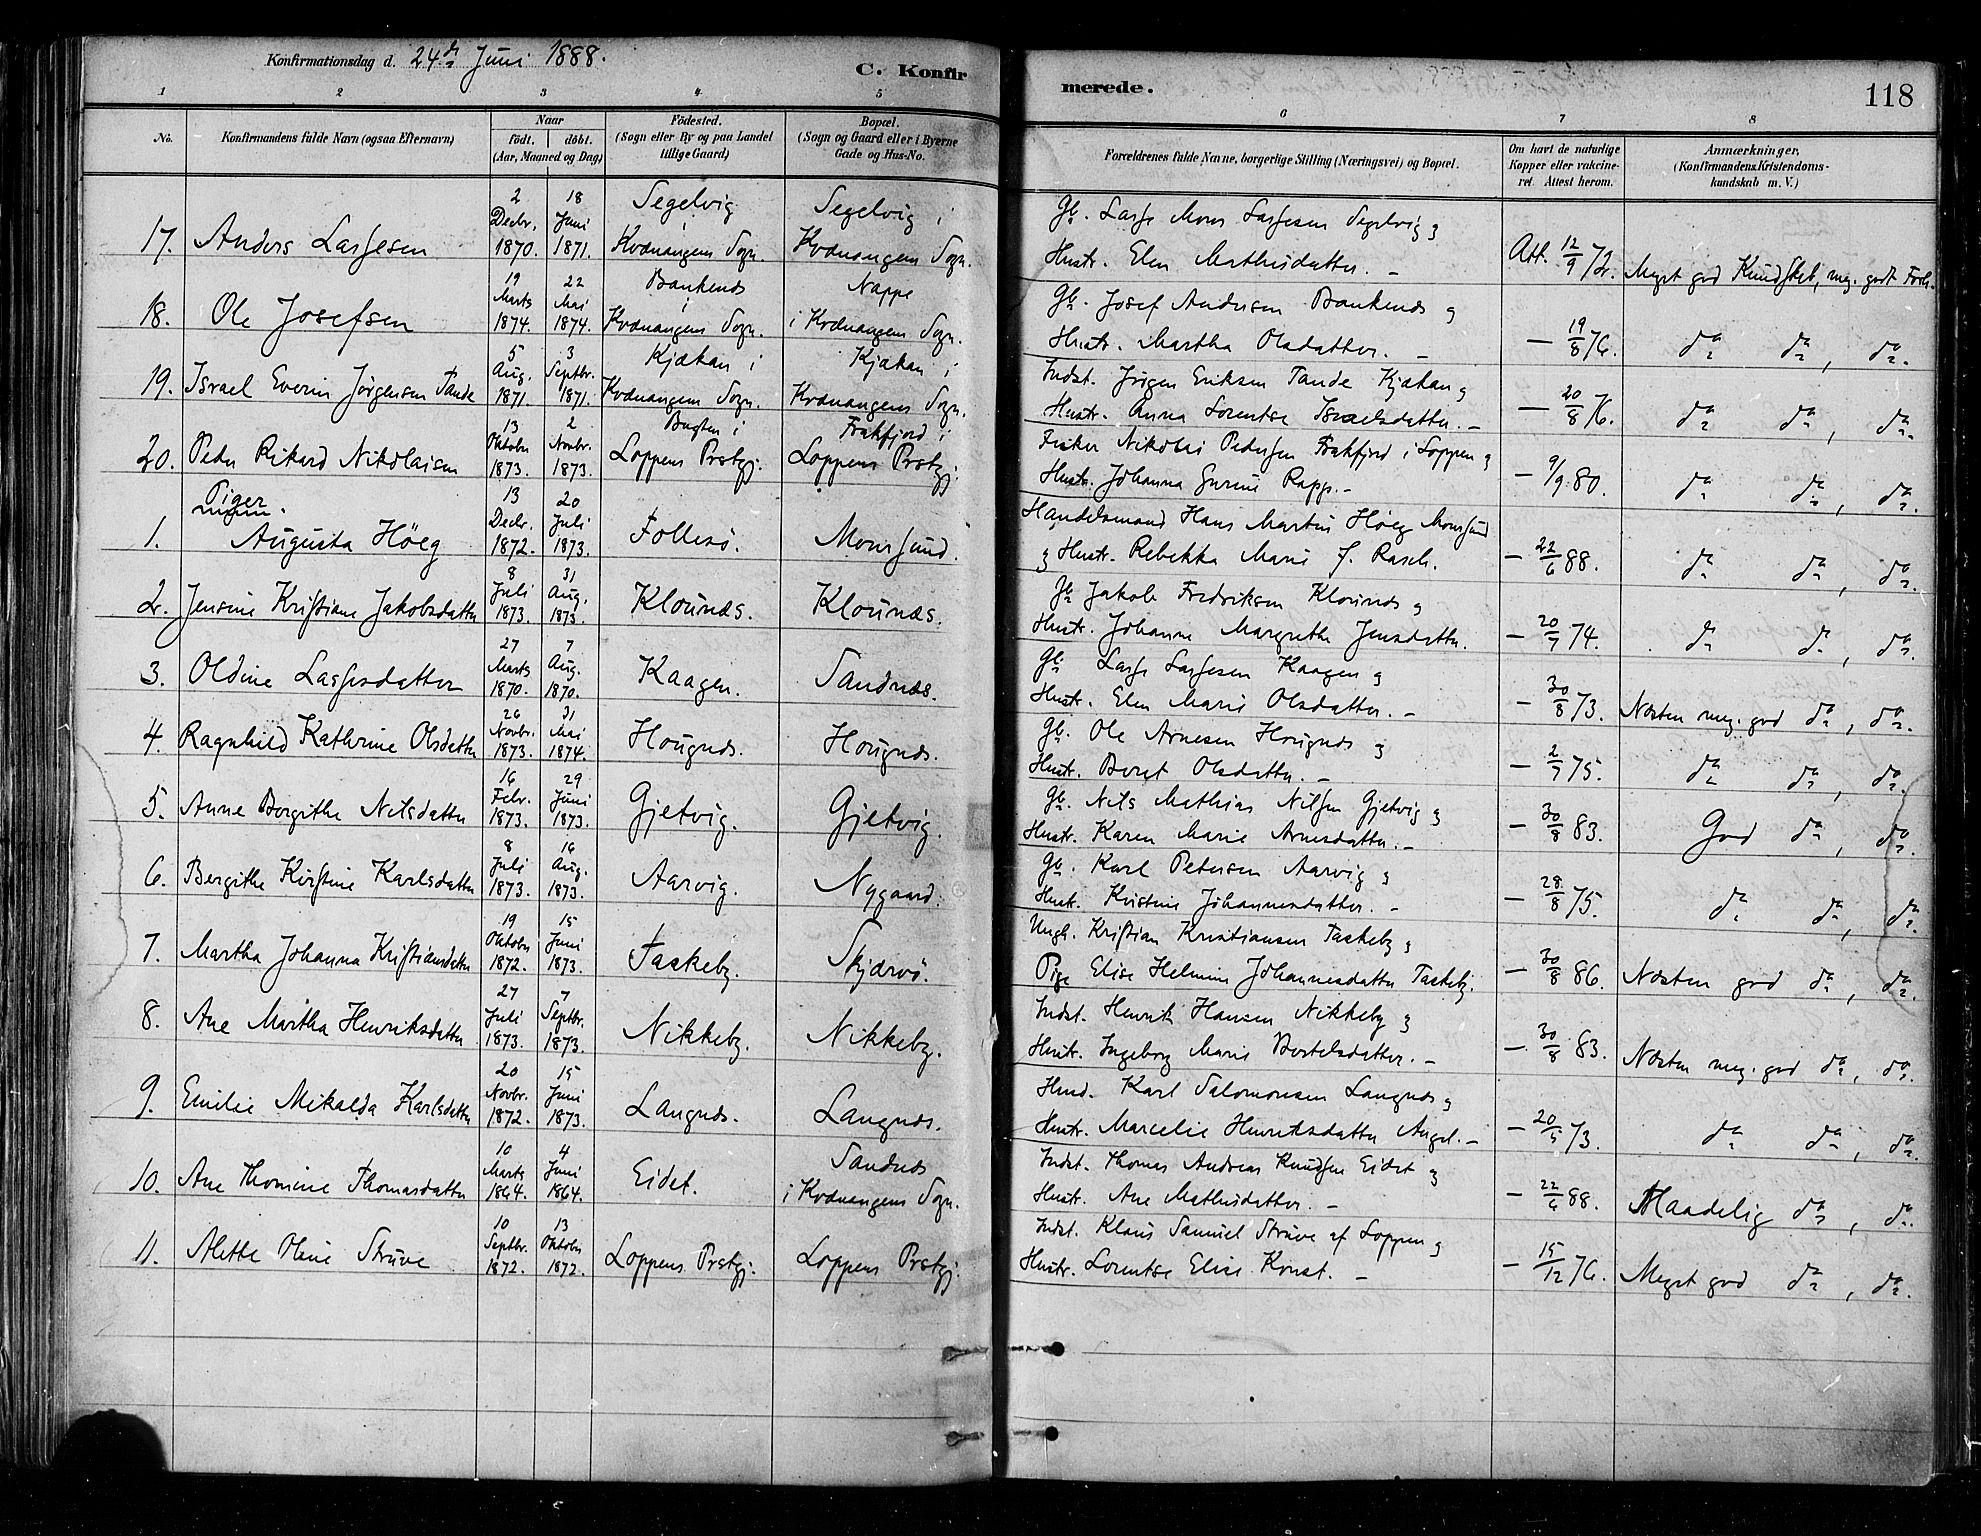 Konfirmationsdag d. 24de Juni 1888.
C. Konfirmerede.
118
1 2 3 4 5 6 7 8
No.
Konfirmandens fulde Navn (ogsaa Efternavn)
Naar
født. døbt.
(Aar, Maaned og Dag)
Fødested.
(Sogn eller By og paa Landet
tillige Gaard)
Bopæl.
(Sogn og Gaard eller i Byerne
Gade og Hus-No.
Forældrenes fulde Navne, borgerlige Stilling (Næringsvei) og Bopæl.
Om havt de naturlige
Kopper eller vakcine-
ret. Attest herom.
Anmærkninger,
(Konfirmandens Kristendoms-
kundskab m. V.)
17. Anders Lassesen 2 Decbr. 1870. 18 Juni 1871. Segelvig i Kvænangens Sogn. Segelvig i Kvænangens Sogn.
Gb. Lasse Mons Lassesen Segelvig og
Hustr. Elen Mathisdatter. –
Att. 12/9 72. Meget god Kundskab, meg. godt Forh.
18. Ole Josefsen 19 Marts 1874. 22 Mai 1874. Bankenæs i Kvænangens Sogn. Nappe i Kvænangens Sogn.
Gb. Josef Andersen Bankenæs og
Hustr. Martha Olsdatter. –
– 19/8 76. do do, do.
19. Israel Everin Jørgensen Tande 5 Aug. 1871 3 Septbr. 1871. Kjækan i Kvænangens Sogn. Kjækan i Kvænangens Sogn.
Indst. Jørgen Eriksen Tande Kjækan og
Hustr. Anna Lorentse Israelsdatter. –
– 20/8 76. do do, do.
20. Peder Rikard Nikolaisen 13 Oktober 1873. 2 Novbr. 1873. Bugten i Loppens Prstgj. Frakfjord i Loppens Prstgj.
Fisker Nikolai Pedersen Frakfjord i Loppen og
Hustr. Johanna Gurine Rapp. –
– 9/9 80. do do, do.
Piger
1. Augusta Höeg 13 Decbr. 1872. 20 Juli 1873. Follesö. Moursund.
Handelsmand Hans Martin Höeg Moursund
og Hustr. Rebekka Marie f. Rasch.
– 22/6 88. do do, do.
2. Jensine Kristiane Jakobsdatter 8 Juli 1873. 31 Aug. 1873. Klounæs. Klounæs.
Gb. Jakob Fredriksen Klounæs og
Hustr. Johanne Margrethe Jensdatter.
– 20/9 74. do do, do.
3. Oldine Lassesdatter 27 Marts 1870. 7 Aug. 1870. Kaagen. Sandnæs.
Gb. Lasse Lassesen Kaagen og
Hustr. Elen Marie Olsdatter. –
– 30/8 73. Næsten meg. god do, do.
4. Ragnhild Kathrine Olsdatter 26 Novbr. 1873. 31 Mai 1874. Hougnæs. Hougnæs.
Gb. Ole Arnesen Hougnæs og
Hustr. Beret Olsdatter. –
– 2/9 75. do do, do.
5. Anne Bergithe Nilsdatter 16 Febr. 1873. 29 Juni 1873. Gjetvig. Gjetvig.
Gb. Nils Mathias Nilsen Gjetvig og
Hustr. Karen Marie Arnesdatter. –
– 30/8 83. God do, do.
6. Bergithe Kirstine Karlsdatter 8 Juli 1873. 16 Aug. 1873. Aarvig. Nygaard.
Gb. Karl Petersen Aarvig og
Hustr. Kristine Johannesdatter. –
– 28/8 75. do do, do.
7. Martha Johanna Kristiansdatter 19 Oktober 1872. 15 Juni 1873. Taskeby. Skjærvö.
Ungk. Kristian Kristiansen Taskeby og
Pige Elise Helmine Johannesdatter Taskeby.
– 30/8 86. Næsten god do, do.
8. Ane Martha Henriksdatter 27 Juli 1873. 7 Septbr. 1873. Nikkeby. Nikkeby.
Indst. Henrik Hansen Nikkeby og
Hustr. Ingeborg Marie Bertelsdatter. –
– 30/8 83. Næsten meg. god do, do.
9. Emilie Mikalda Karlsdatter 20 Novbr. 1872. 15 Juni 1873. Langnæs. Langnæs.
Husd. Karl Salomonsen Langnæs og
Hustr. Marcelie Henriksdatter Angel. –
– 20/5 73. do do, do.
10. Ane Thomine Thomasdatter 10 Marts 1864. 4 Juni 1864. Eidet. Sandnæs i Kvænangens Sogn.
Indst. Thomas Andreas Knudsen Eidet og
Hustr. Ane Mathisdatter. –
– 22/6 88. Maadelig do, do.
11. Alette Oline Strüve 10 Septbr. 1872. 13 Oktober 1872. Loppens Prstgj. Loppens Prstgj.
Indst. Klaus Samuel Strüve af Loppen og
Hustr. Lorentse Elise Konst. –
– 15/12 76. Meget god do, do.